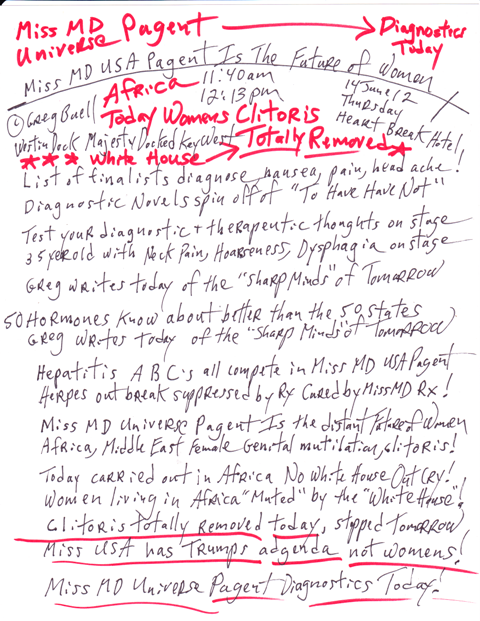 Miss MD Pagent → Diagnostics
Universe Today
Miss MD USA Pagent Is The Future of Women
Africa 11:40am 14 June 12
© Greg Buell 12:13pm Thursday
Today Womens Clitoris Heart Break Hotel!
Westin Dock Majesty Docked Key West Totally Removed
*** White House →
List of finalists diagnose nausea, pain, head ache!
Diagnostic Novels spin off of "To Have Have Not"
Test your diagnostic + therapeutic thoughts on stage
35 yer old with Neck Pain, Hoarseness, Dysphagia on stage
Greg writes today of the "Sharp Minds" of Tomorrow
50 Hormones Know about better than the 50 states
Greg writes today of the "Sharp Minds" of Tomorrow
Hepatitis A B C's all compete in Miss MD USA Pagent
Herpes out break suppressed by Rx Cured by Miss MD Rx!
Miss MD Universe Pagent Is the distant Future of Women
Africa, Middle East Female Genital mutilation, clitoris!
Today carried out in Africa No White House Out Cry!
Women living in Africa "Muted" by the "White House"!
Clitoris totally removed today, stopped Tomorrow
Miss USA has Trumps adgenda not womens!
Miss MD Universe Pagent Diagnostics Today!